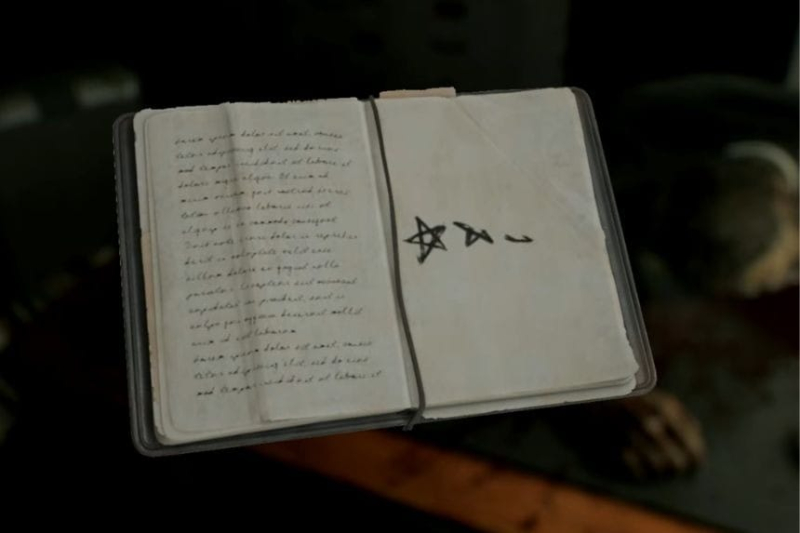 Lorem ipsum dolor sit amet, consec
tetur adipiscing elit, sed do eius
mod tempor incididunt ut labore et
dolore magna aliqua. Ut enim ad
minim veniam, quis nostrud
ullamco laboris nisi ut
aliquip ex ea commodo consequat.
Duis aute irure dolor in reprehen
derit in voluptate velit esse
cillum dolore eu fugiat nulla
pariatur. Excepteur sint occaecat
cupidatat proident, sunt in
culpa qui officia deserunt mollit
anim id est laborum
Lorem ipsum dolor sit amet, consec
tetur adipiscing elit, sed do eius
mod tempor incididunt ut labore et